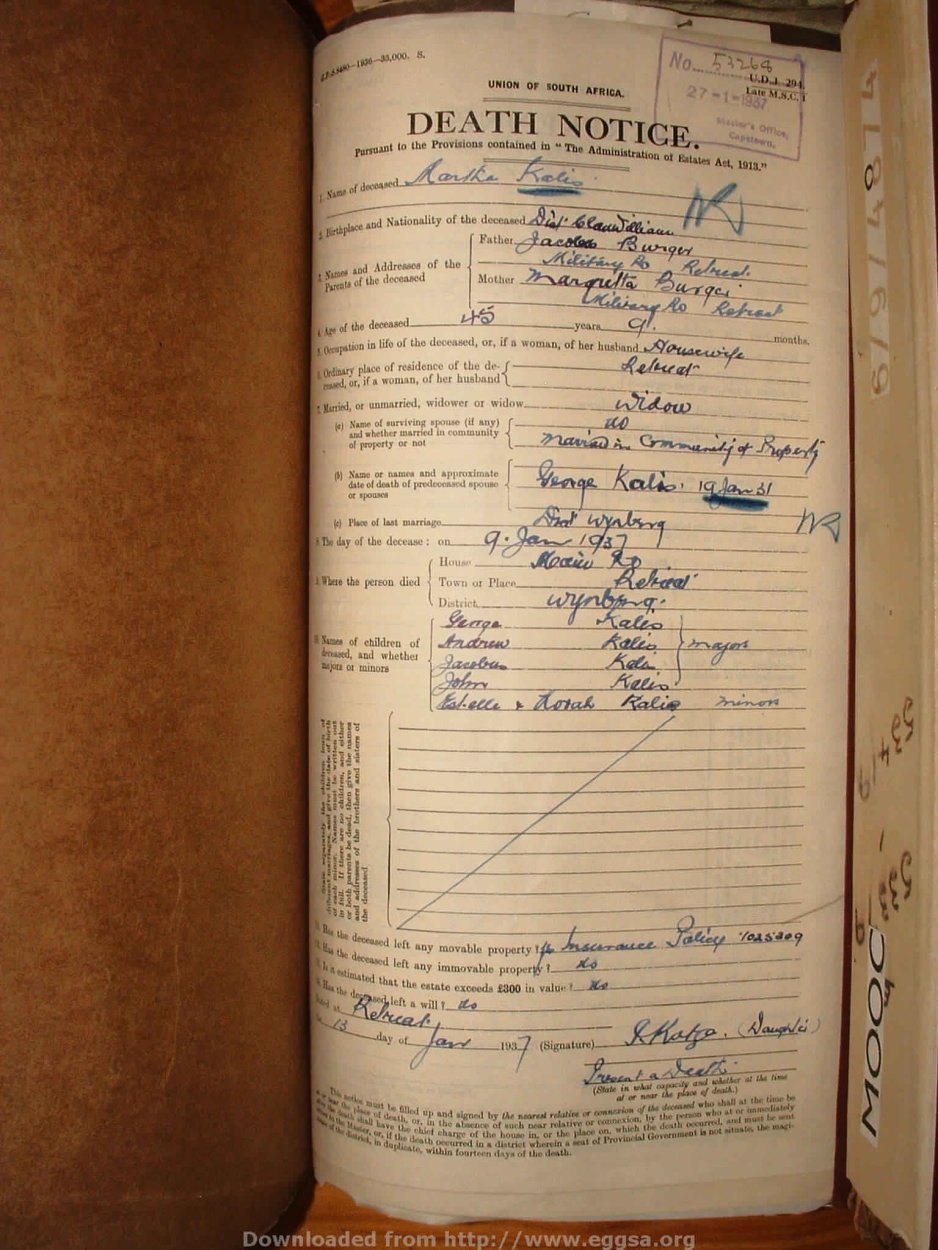 U.D.J. 5480—1936—35,000. S.
No. 53268
U.D.J. 294.
Late M.S.C. 1
27-1-1937
Master's Office,
Capetown.
UNION OF SOUTH AFRICA.
DEATH NOTICE.
Pursuant to the Provisions contained in "The Administration of Estates Act, 1913."
1. Name of deceased Martha Kalis
2. Birthplace and Nationality of the deceased Dist' Clanwilliam
3. Names and Addresses of the Parents of the deceased
Father Jacobus Burger
Military Rd Retreat
Mother Margretta Burger
Military Rd Retreat
4. Age of the deceased 45 years 9 months.
5. Occupation in life of the deceased, or, if a woman, of her husband Housewife
6. Ordinary place of residence of the deceased, or, if a woman, of her husband Retreat
7. Married, or unmarried, widower or widow widow
(a) Name of surviving spouse (if any) and whether married in community of property or not
no
Married in Community of Property
(b) Name or names and approximate date of death of predeceased spouse or spouses
George Kalis. 19 Jan 31
(c) Place of last marriage Dist' Wynberg
8. The day of the decease: on 9. Jan 1937
9. Where the person died
House Main Rd
Town or Place Retreat
District Wynberg.
10. Names of children of deceased, and whether majors or minors
George Kalis
Andrew Kalis
Jacobus Kalis
John Kalis
majors
Estelle & Norah Kalis minors
State separately the children born of different marriages, and give the date of birth of each minor. Names must be written out in full. If there are no children, and either or both parents be dead, then give the names and addresses of the brothers and sisters of the deceased
11. Has the deceased left any movable property? Insurance Policy 1025209
12. Has the deceased left any immovable property? No
13. Is it estimated that the estate exceeds £300 in value? No
14. Has the deceased left a will? No
Dated at Retreat
the 13 day of Jan 1937 (Signature) (Daughter)
Present at Death
(State in what capacity and whether at the time of or near the place of death.)
This notice must be filled up and signed by the nearest relative or connexion of the deceased who shall at the time be at or near the place of death, or, in the absence of such near relative or connexion, by the person who at or immediately after the death shall have the chief charge of the house in, or the place on, which the death occurred, and must be sent to the Master, or, if the death occurred in a district wherein a seat of Provincial Government is not situate, the magistrate of the district, in duplicate, within fourteen days of the death.
MOOC
Downloaded from http://www.eggsa.org